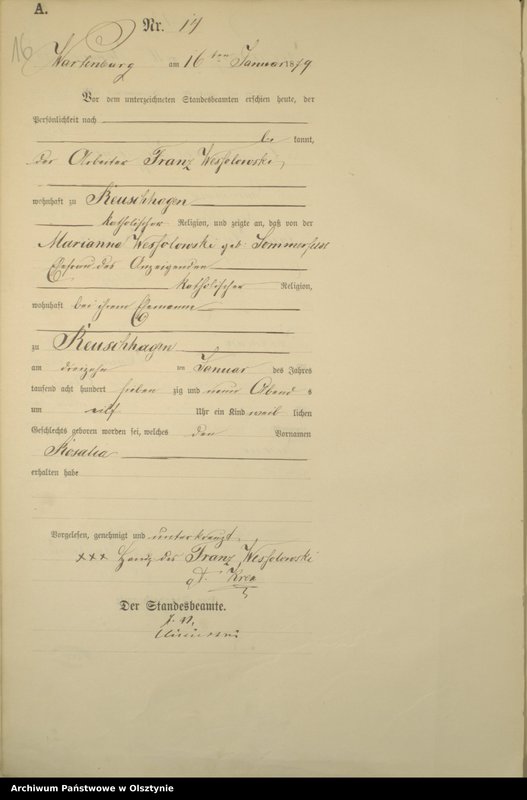 A.
Nr. 14
16
Wartenburg am 16 ten Januar 1879
Vor dem unterzeichneten Standesbeamten erschien heute, der
Persönlichkeit nach
be kannt,
der Arbeiter Franz Wessolowski,
wohnhaft zu Reuschhagen
katholischer Religion, und zeigte an, daß von der
Marianna Wessolowski geb: Sommerfeld
Ehefrau des Anzeigenden
katholischer Religion,
wohnhaft bei ihrem Ehemanne
zu Reuschhagen
am dreizehn ten Januar des Jahres
tausend acht hundert sieben zig und neun Abend s
um elf Uhr ein Kind weib lichen
Geschlechts geboren worden sei, welches den Vornamen
Rosalia
erhalten habe
Vorgelesen, genehmigt und unterkreuzt
××× Handz. des Franz Wessolowski
Der Standesbeamte.
J. V.
Archiwum Państwowe w Olsztynie